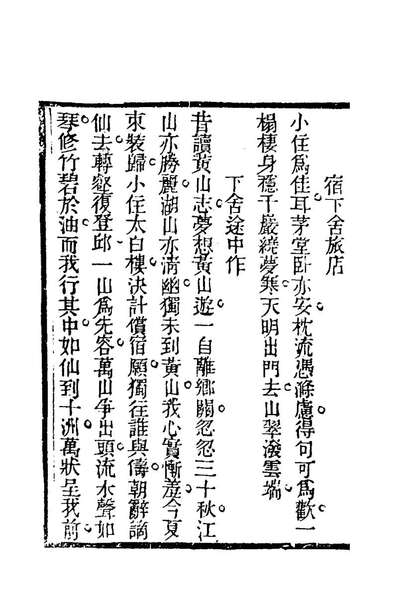 宿下舍旅店
小住爲佳耳茅堂臥亦安枕流憑滌慮得句可爲歡一
榻棲身穩千巖繞夢寒天明出門去山翠潑雲端
下舍途中作
昔讀黃山志夢想黃山遊一自離鄉關忽忽三十秋江
山亦勝麗湖山亦清幽獨未到黃山我心實慚羞今夏
束裝歸小住太白樓決計償宿願獨往誰與儔朝辭謫
仙去轉壑復登邱一山爲先容萬山爭出頭流水聲如
琴修竹碧於油而我行其中如仙到十洲萬狀呈我前